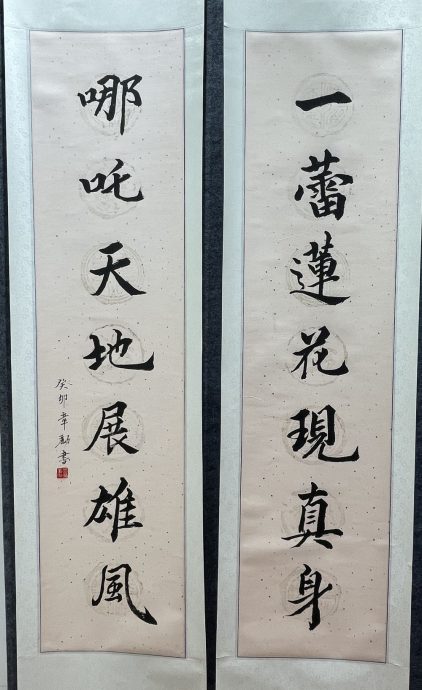 一蕾蓮花現真身
哪吒天地展雄風
癸卯韋勳書